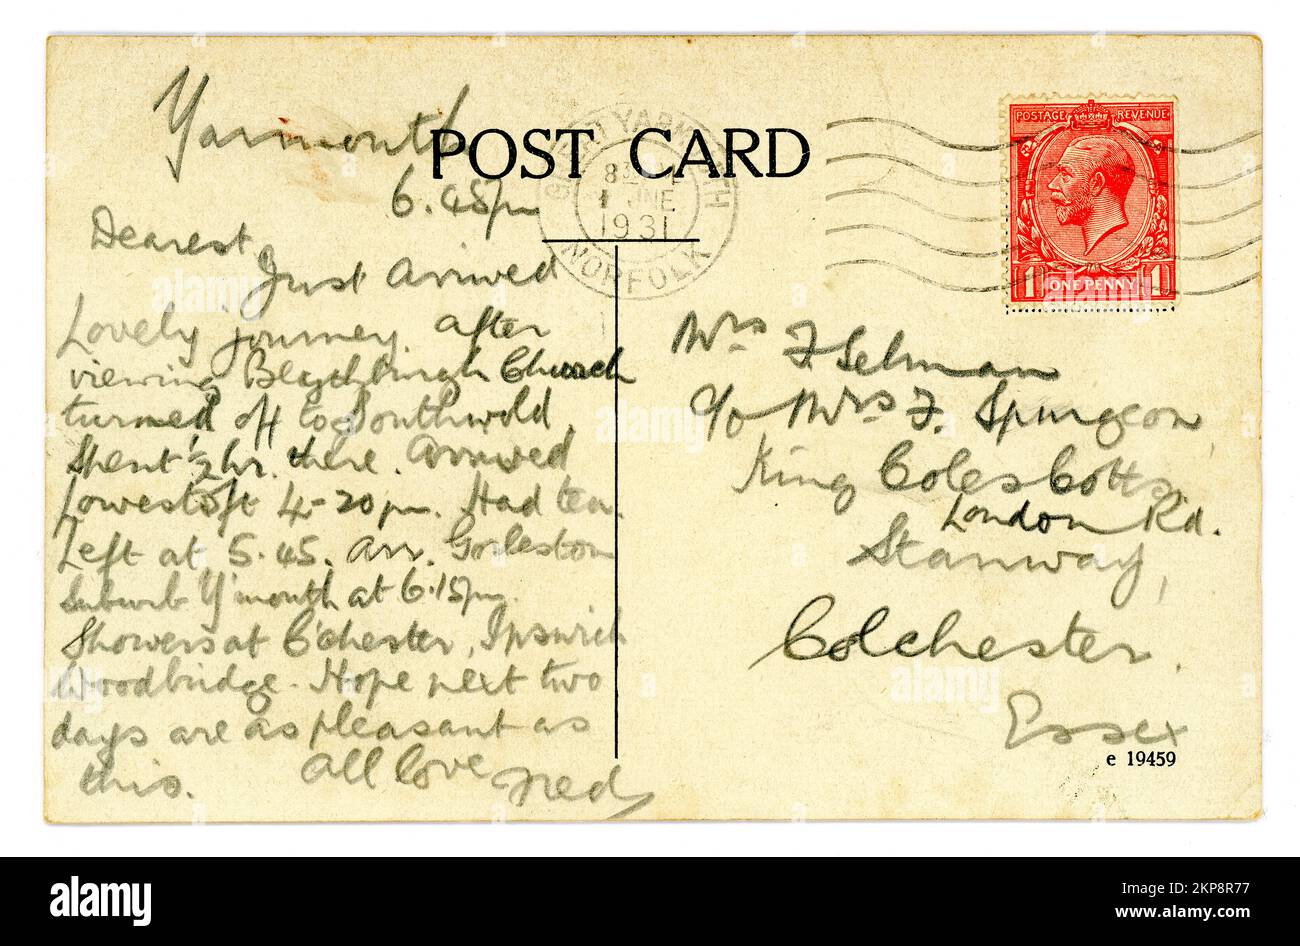 Yarmouth
POST CARD
6.45pm
Dearest
Just Arrived
Lovely journey. After
viewing Blythburgh Church
turned off to Southwold
Spent 1/2 hr. there. Arrived
Lowestoft 4-20pm. Had tea.
Left at 5.45. Arr. Gorleston
Suburb Y'mouth at 6.15pm.
Showers at C'chester, Ipswich
Woodbridge. Hope next two
days are as pleasant as
this. All love Fred
GREAT YARMOUTH
JNE
1931
NORFOLK
POSTAGE REVENUE
1 ONE PENNY 1
Mrs F Selman
c/o Mrs F. Spurgeon
King Coles Cotts.
London Rd.
Stanway,
Colchester.
Essex
e 19459
alamy
Image ID: 2KP8R77
www.alamy.com